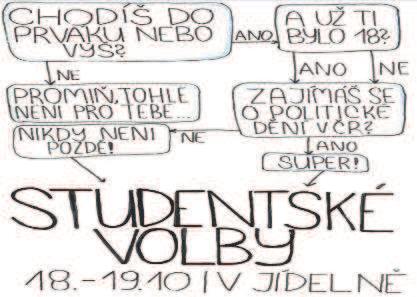 CHODÍŠ DO
PRVÁKU NEBO
VÝŠ?
ANO
A UŽ TI
BYLO 18?
NE
ANO
NE
PROMIŇ, TOHLE
NENÍ PRO TEBE...
ZAJÍMÁŠ SE
O POLITICKÉ
DĚNÍ V ČR?
NIKDY NENÍ
POZDĚ!
NE
ANO
SUPER!
STUDENTSKÉ
VOLBY
18.-19.10 | V JÍDELNĚ